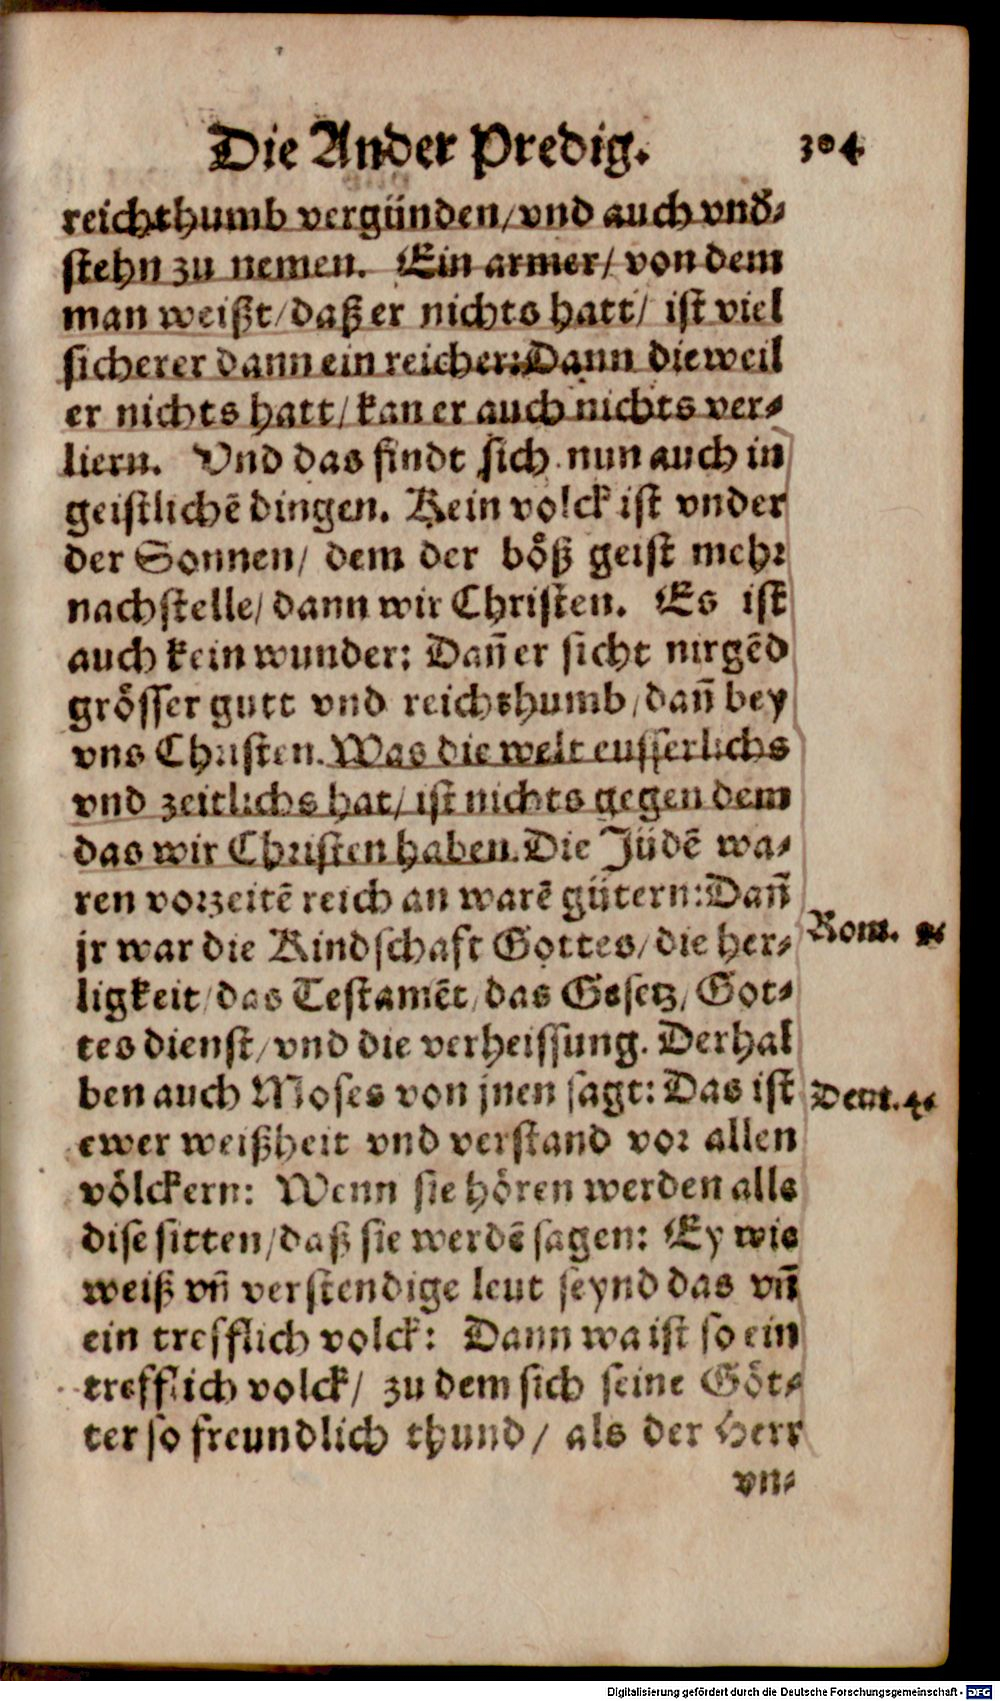 Die Ander Predig. 304
reichthumb vergünden/vnd auch vnd̄⸗
stehn zu nemen. Ein armer/ von dem
man weißt/daß er nichts hatt/ ist viel
sicherer dann ein reicher: Dann dieweil
er nichts hatt/kan er auch nichts ver⸗
liern. Vnd das findt sich nun auch in
geistlichē dingen. Kein volck ist vnder
der Sonnen/ dem der böß geist mehr
nachstelle/dann wir Christen. Es ist
auch kein wunder: Dañ er sicht nirgēd
grösser gutt vnd reichthumb/dañ bey
vns Christen. Was die welt eusserlichs
vnd zeitlichs hat/ist nichts gegen dem
das wir Christen haben. Die Jüdē wa⸗
ren vorzeitē reich an warē gütern: Dañ
jr war die Kindschaft Gottes/die her⸗
Rom. 9.
ligkeit/das Testamēt/das Gesetz/Got⸗
tes dienst/vnd die verheissung. Derhal
ben auch Moses von jnen sagt: Das ist
Deut. 4.
ewer weißheit vnd verstand vor allen
völckern: Wenn sie hören werden alle
dise sitten/daß sie werdē sagen: Ey wie
weiß vñ verstendige leut seynd das vñ
ein trefflich volck: Dann wa ist so ein
trefflich volck/ zu dem sich seine Göt⸗
ter so freundlich thund/ als der Herr
vn⸗
Digitalisierung gefördert durch die Deutsche Forschungsgemeinschaft - DFG